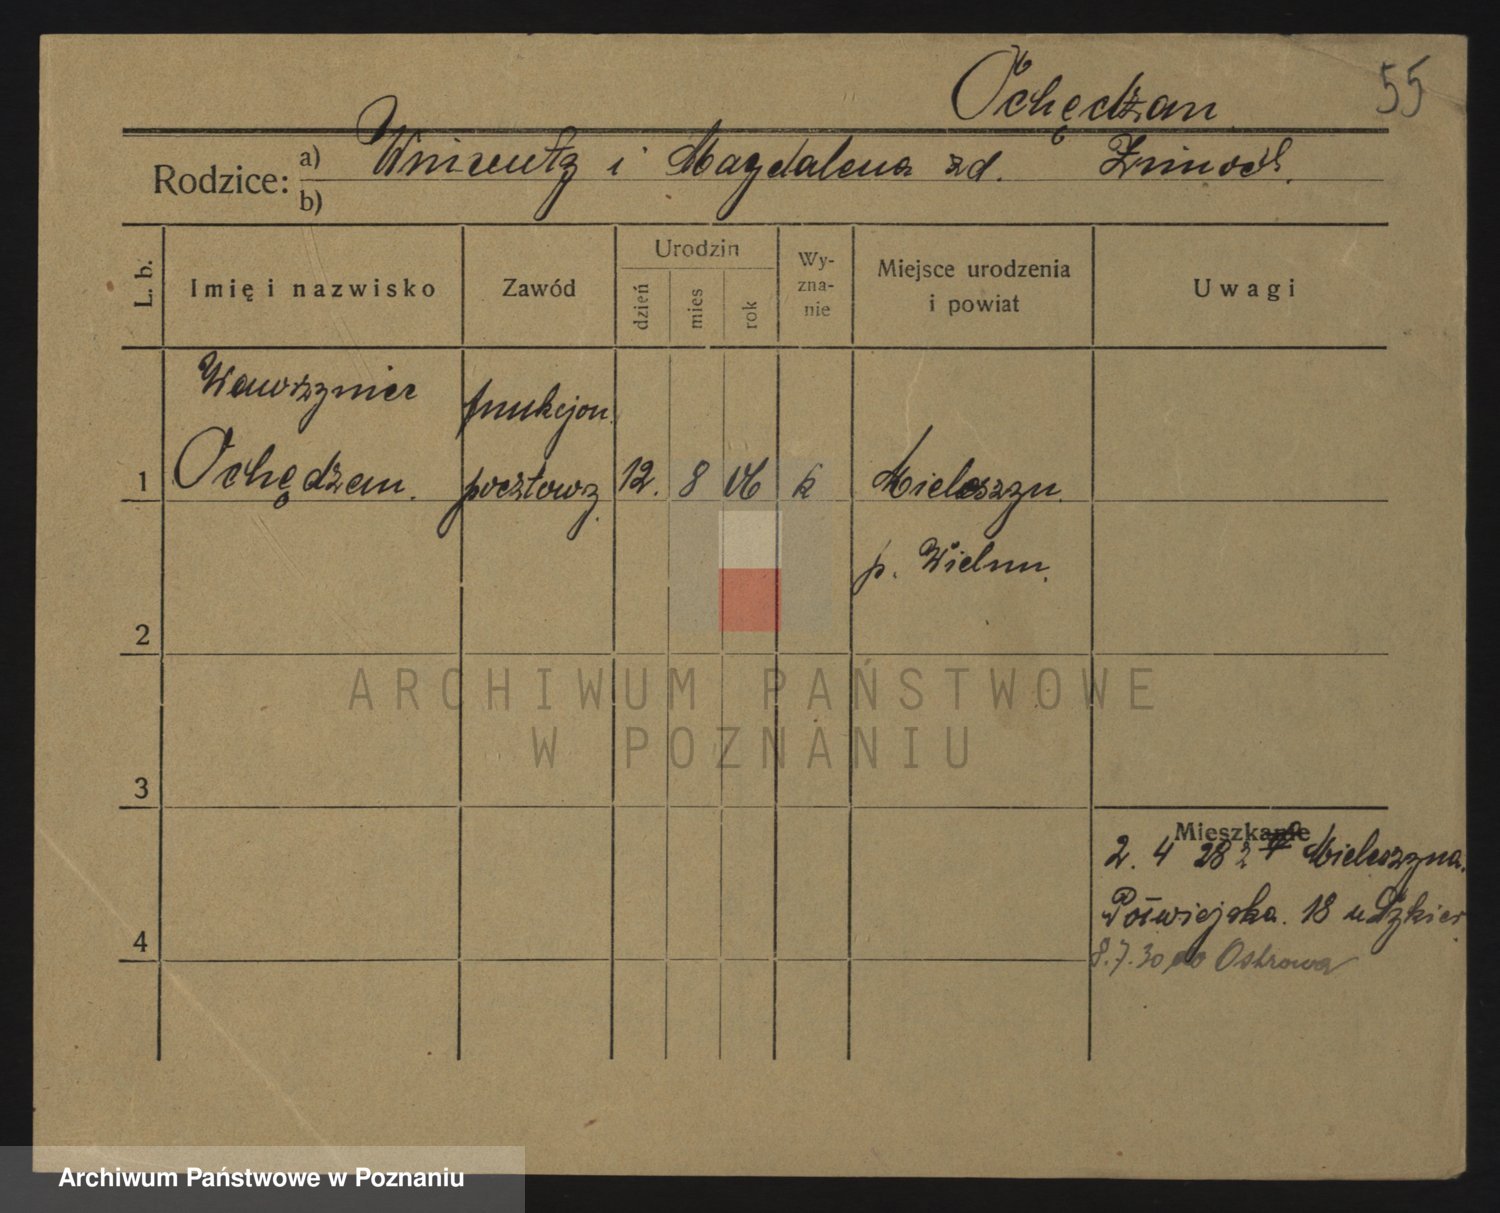 55
Ochędzan
Rodzice: a) Wnicenty i Magdalena zd. Zimoch.
b)
L. b. Imię i nazwisko Zawód Urodzin dzień mies rok Wy-zna-nie Miejsce urodzenia i powiat Uwagi
Wawrzyniec funkcjon.
1 Ochędzan. pocztowy. 12. 8 06 k Mieleszyn.
p. Wielun.
2
ARCHIWUM PAŃSTWOWE
W POZNANIU
3
Mieszkanie
2. 4 28 z Mieleszyna.
Poświejska. 18 u
4
8.7.30 do Ostrowa
Archiwum Państwowe w Poznaniu